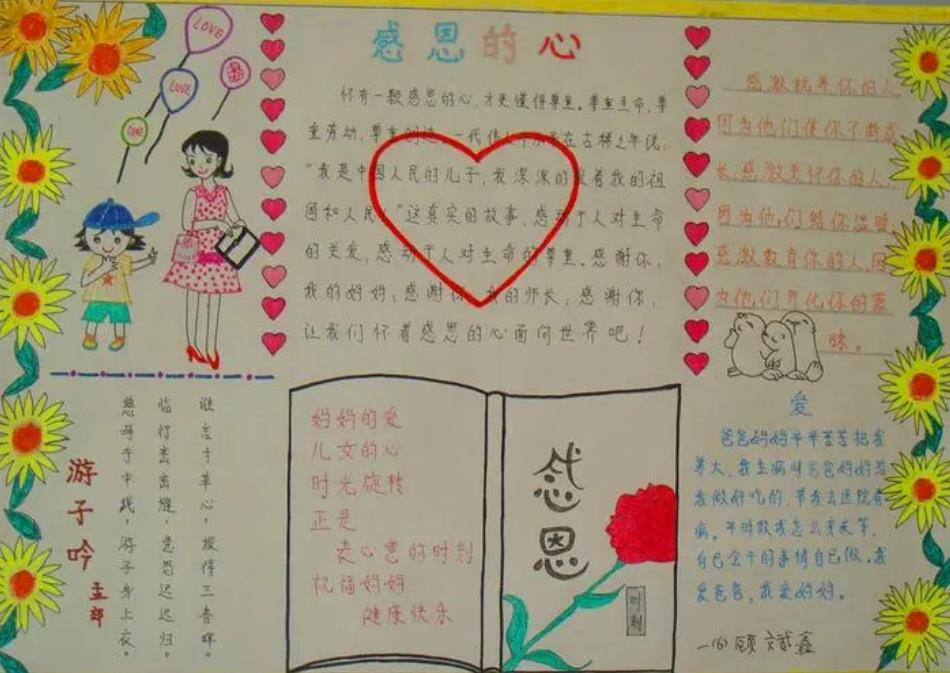 感恩的心
LOVE
LOVE
LOVE
怀有一颗感恩的心,才更懂得尊重。尊重生命,尊
重劳动,尊重创造。一代伟人邓小平在古稀之年说:
“我是中国人民的儿子,我深深的爱着我的祖
国和人民。”这真实的故事,感动于人对生命
的关爱,感动于人对生命的尊重。感谢你,
我的妈妈;感谢你,我的师长;感谢你,
让我们怀着感恩的心面向世界吧!
感激抚养你的人,
因为他们使你不断成
长;感激关怀你的人,
因为他们给你温暖;
感激教育你的人,因
为他们开化你的蒙
昧。
游子吟
孟郊
慈母手中线,游子身上衣。
临行密密缝,意恐迟迟归。
谁言寸草心,报得三春晖。
妈妈的爱
儿女的心
时光旋转
正是
表心意的时刻
祝福妈妈
健康快乐
感恩
时刻
爱
爸爸妈妈辛辛苦苦把我
养大,我生病时爸爸妈妈给
我做好吃的,带我去医院看
病。平时教我怎么穿衣等,
自己会干的事情自己做。我
爱爸爸,我爱妈妈。
一(6)顾斌鑫